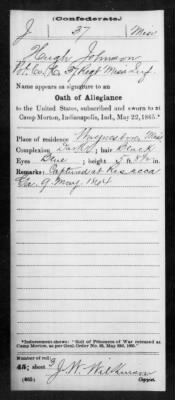 (Confederate.)
J 37 Miss
Hugh Johnson
Pvt. Co. H, 37 Regt Miss Inf.
Name appears as signature to an
Oath of Allegiance
to the United States, subscribed and sworn to at
Camp Morton, Indianapolis, Ind., May 22, 1865.*
Place of residence Waynesboro Miss
Complexion Dark; hair Black
Eyes Blue; height 5 ft. in.
Remarks: Captured at Resacca
Ga. 9 May 1864
*Indorsement shows: "Roll of Prisoners of War released at
Camp Morton, as per Genl. Order No. 85, May 8th, 1865."
Number of roll:
45; sheet 3 J. W. Wilkinson
Copyist.